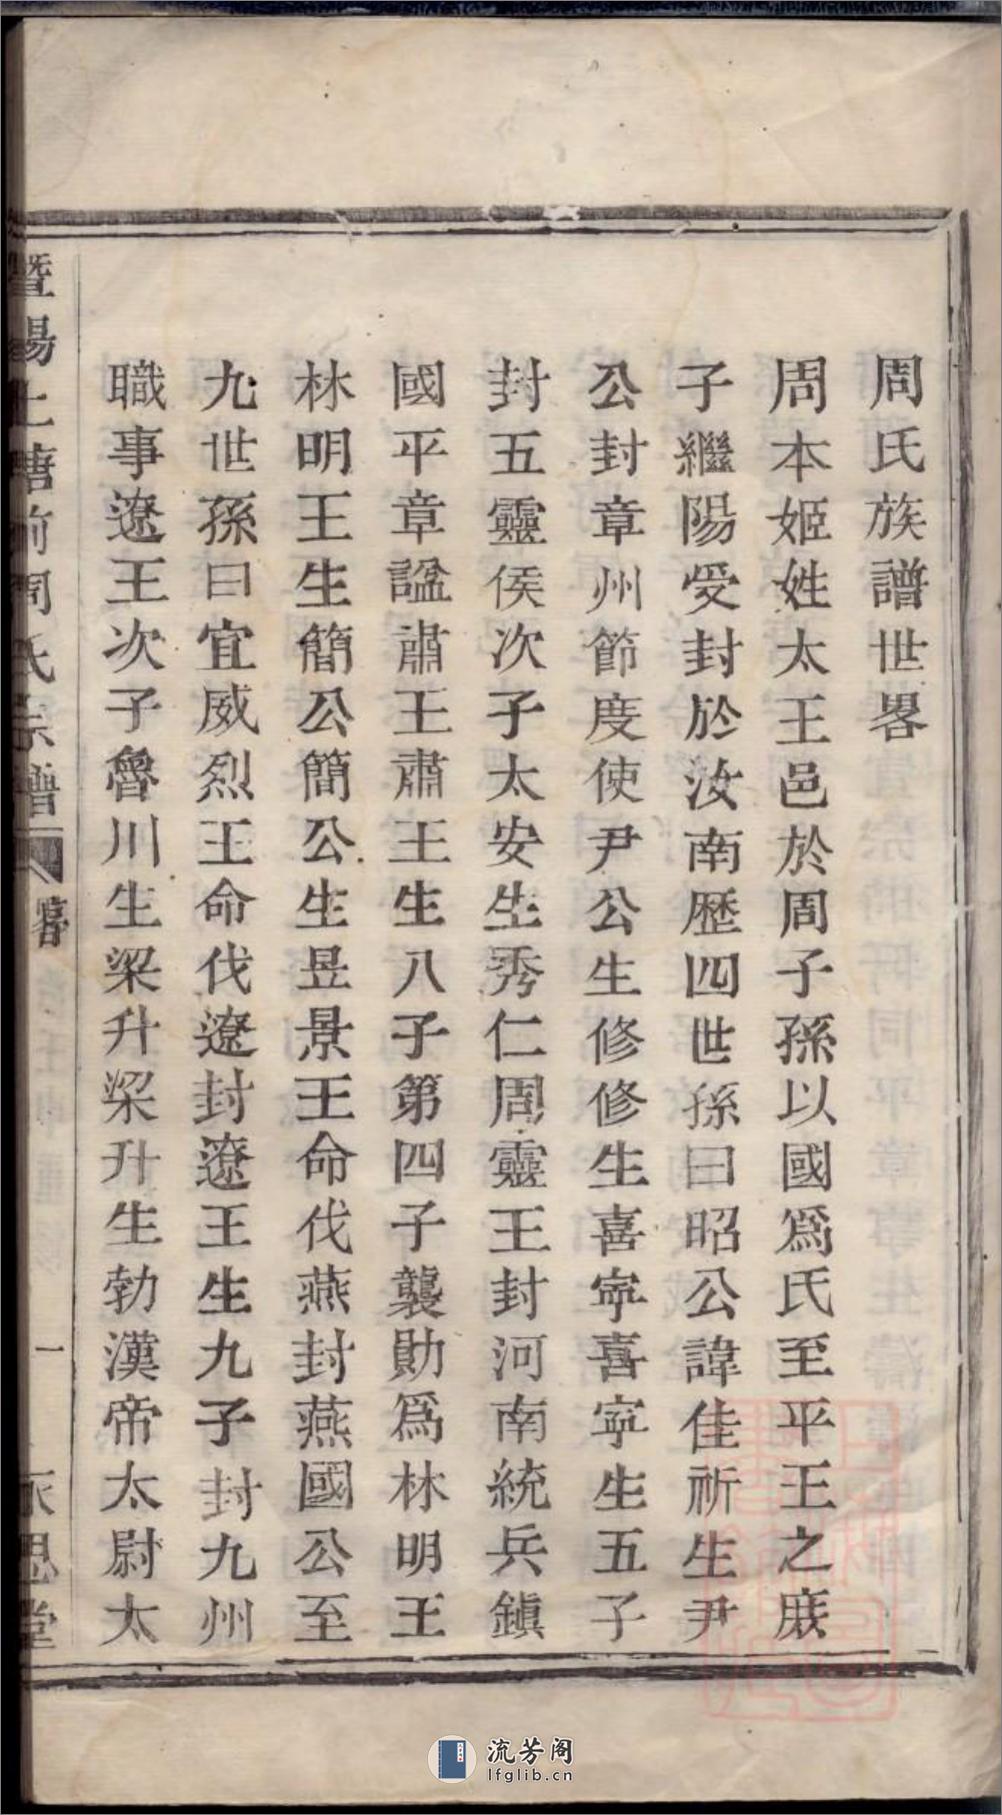 周氏族譜世畧
周本姬姓太王邑於周子孫以國爲氏至平王之庻
子繼陽受封於汝南歷四世孫曰昭公諱佳祈生尹
公封章州節度使尹公生修修生喜寧喜寧生五子
封五靈侯次子太安生秀仁周靈王封河南統兵鎮
國平章諡肅王肅王生八子第四子襲勛爲林明王
林明王生簡公簡公生昱景王命伐燕封燕國公至
九世孫曰宜威烈王命伐遼封遼王生九子封九州
職事遼王次子魯川生梁升梁升生勃漢帝太尉太
暨陽上塘前周氏宗譜 一 永思堂
流芳阁
lfglib.cn